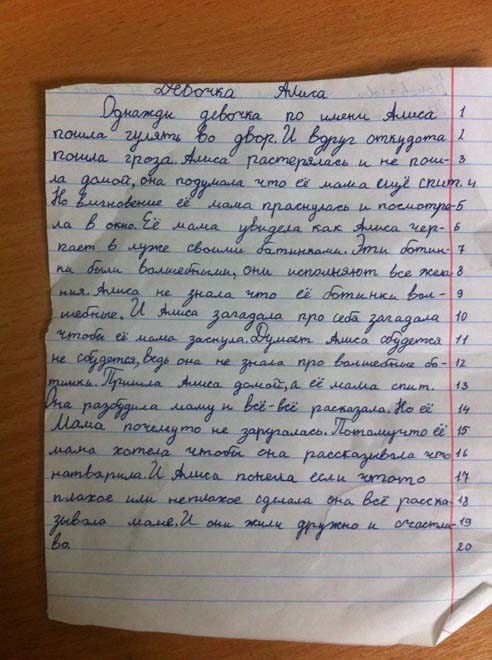 Девочка Алиса
Однажды девочка по имени Алиса 1
пошла гулять во двор. И вдруг откудота 2
пошла гроза. Алиса растерялась и не пош- 3
ла домой, она подумала что её мама ещё спит. 4
Но вмгновение её мама праснулась и посмотре- 5
ла в окно. Её мама увидела как Алиса чер- 6
пает в луже своими батинками. Эти ботин- 7
ки были волшебными, они исполняют все жела- 8
ния. Алиса не знала что её ботинки вол- 9
шебные. И Алиса загадала про себя загадала 10
чтобы её мама заснула. Думает Алиса сбудется 11
не сбудется, ведь она не знала про волшебные бо- 12
тинки. Пришла Алиса домой, а её мама спит. 13
Она разбудила маму и всё-всё рассказала. Но её 14
Мама почемуто не заругалась. Потомучто её 15
мама хотела чтобы она рассказывала что 16
натварила. И Алиса понела если чтото 17
плахое или неплахое сделала она всё расска- 18
зывала маме. И они жили дружно и счастли- 19
во. 20